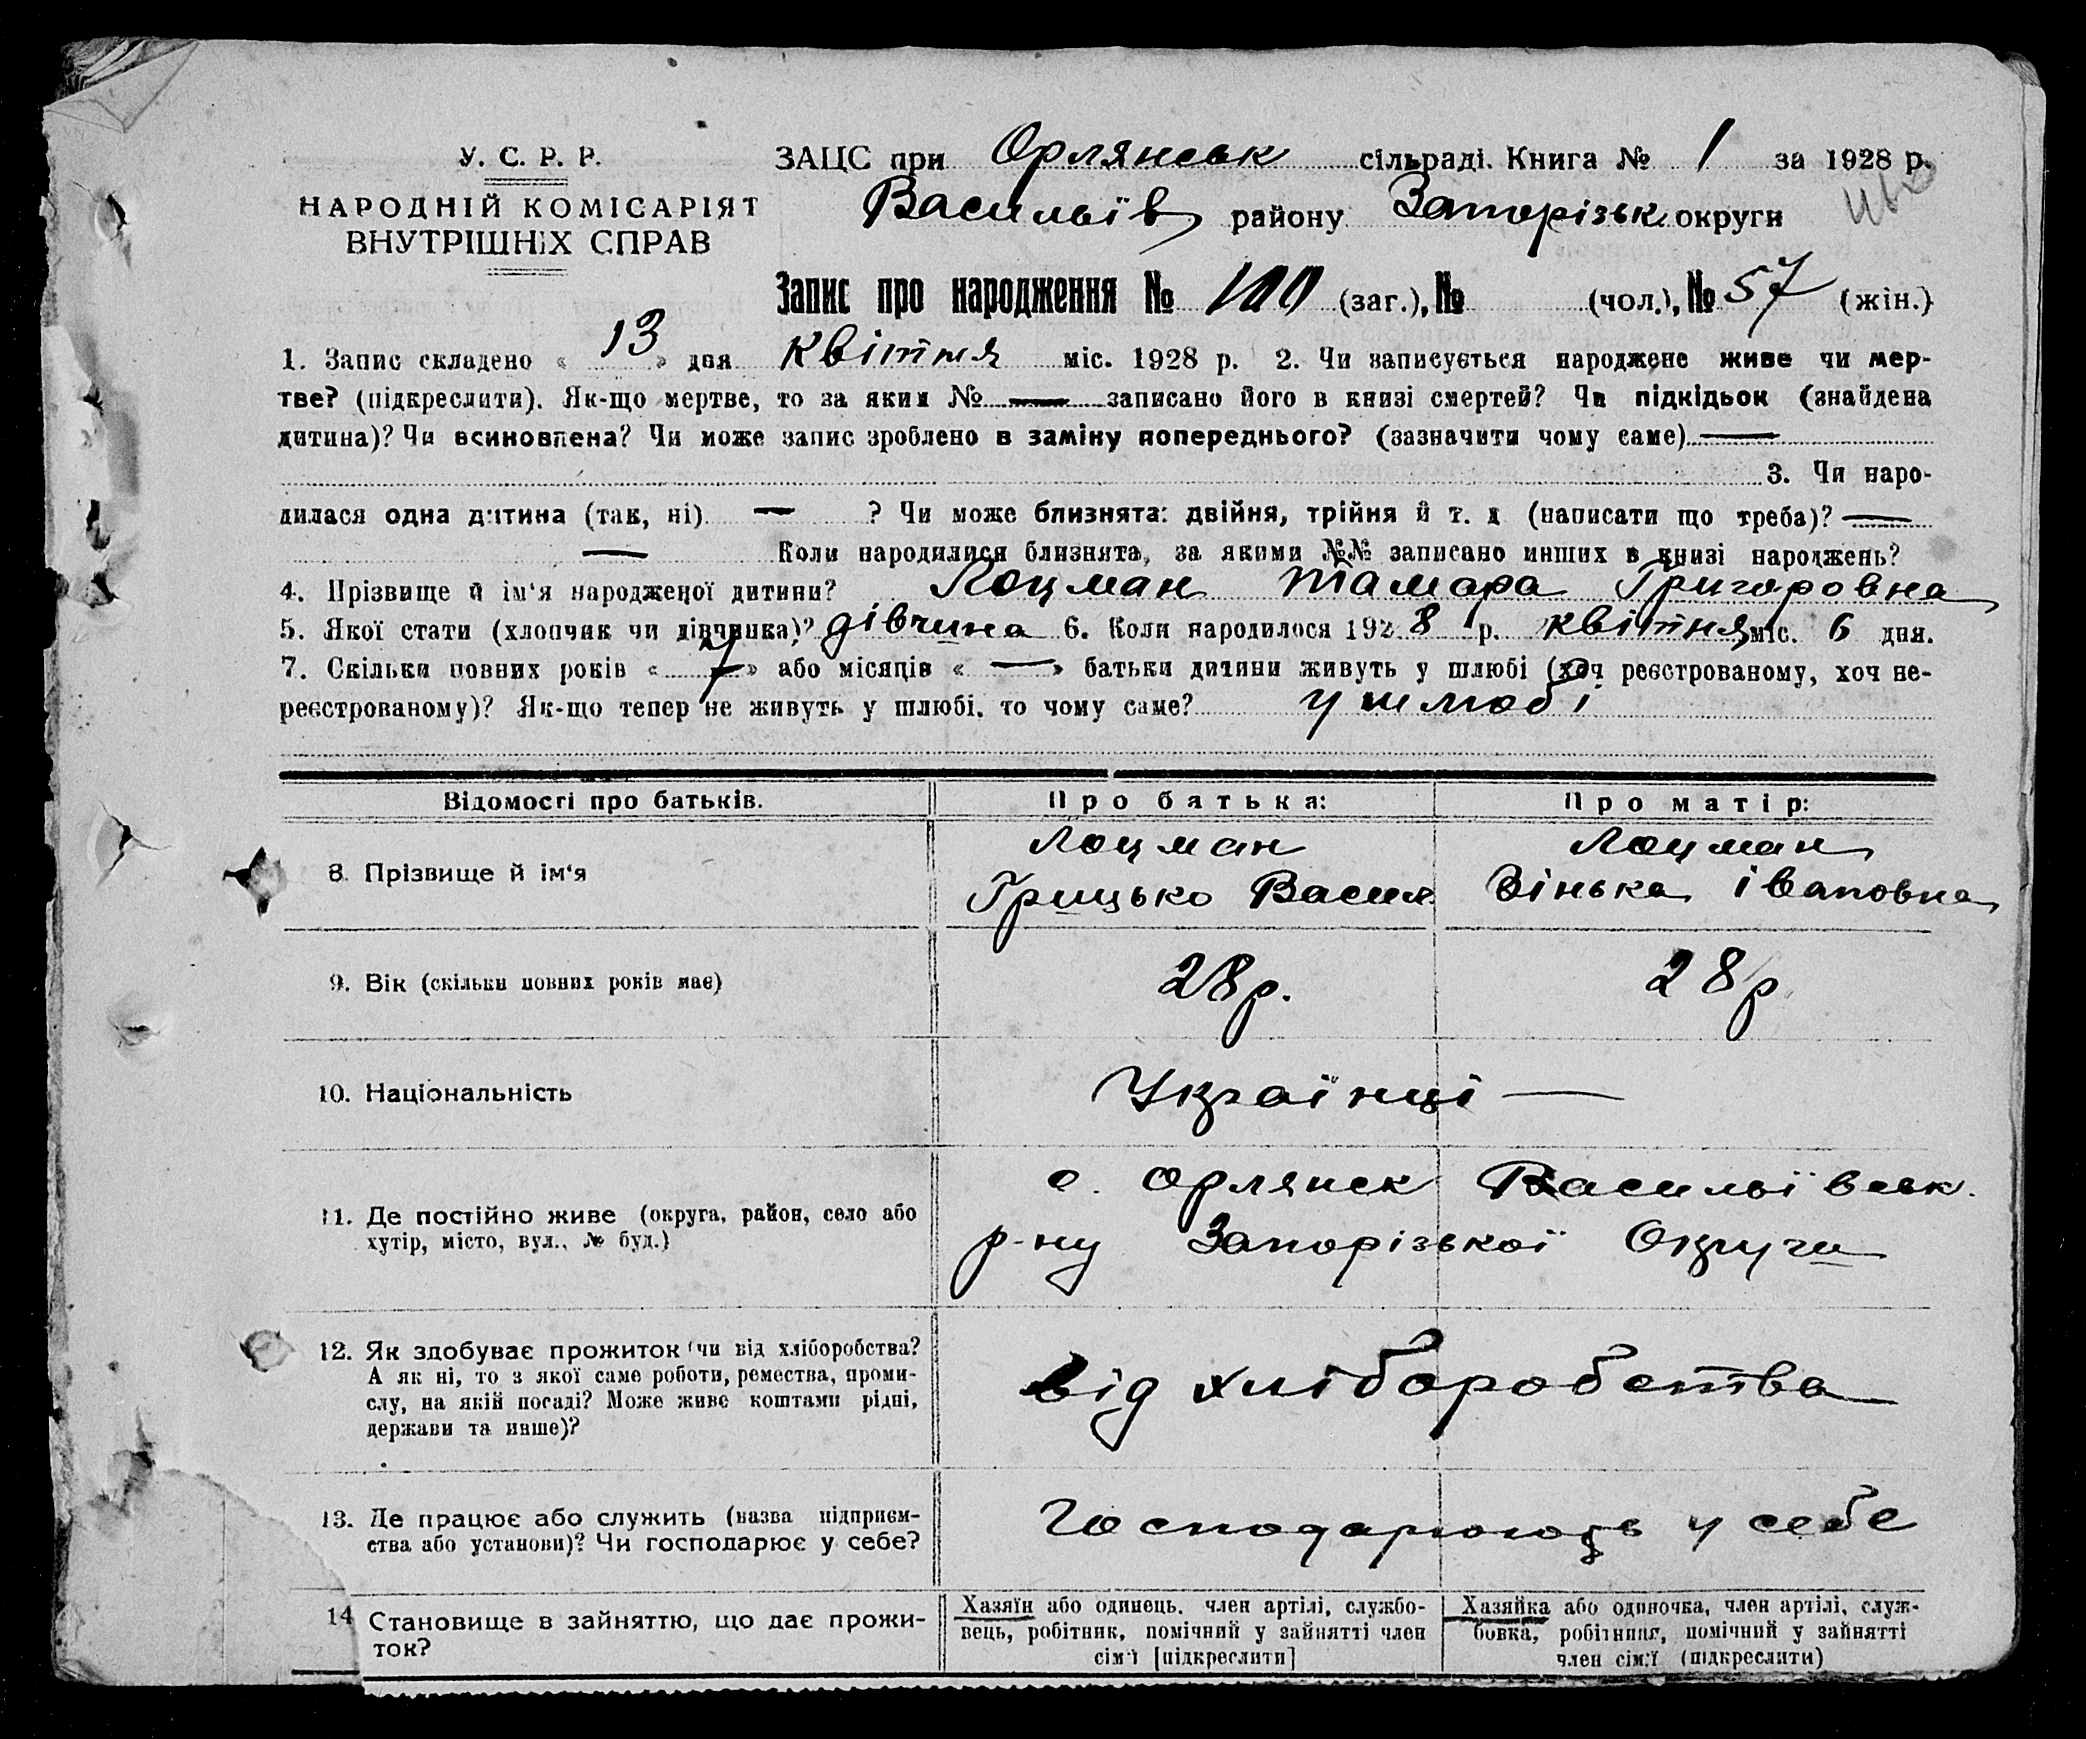 У. С. Р. Р.
НАРОДНІЙ КОМІСАРІЯТ
ВНУТРІШНІХ СПРАВ
ЗАЦС при Орлянськ сільраді. Книга № 1 за 1928 р.
Васильїв району Запорізьк округи
Запис про народження № 100 (заг.), № (чол.), № 57 (жін.)
1. Запис складено « 13 » дня квітня міс. 1928 р. 2. Чи записується народжене живе чи мер-
тве? (підкреслити). Як-що мертве, то за яким № — записано його в книзі смертей? Чи підкідьок (знайдена
дитина)? Чи всиновлена? Чи може запис зроблено в заміну попереднього? (зазначити чому саме) —
3. Чи наро-
дилася одна дитина (так, ні) — ? Чи може близнята: двійня, трійня й т. д (написати що треба)? —
— Коли народилися близнята, за якими №№ записано инших в книзі народжень?
4. Прізвище й ім‘я народженої дитини? Лоцман Тамара Григоровна
5. Якої стати (хлопчик чи дівчинка)? дівчина 6. Коли народилося 1928 р. квітня міс. 6 дня.
7. Скільки повних років « 7 » або місяців « — » батьки дитини живуть у шлюбі (хоч реєстрованому, хоч не-
реєстрованому)? Як-що тепер не живуть у шлюбі, то чому саме? у шлюбі
Відомості про батьків. Про батька: Про матір:
8. Прізвище й ім‘я
Лоцман
Грицько Васил
Лоцман
Зінька івановна
9. Вік (скільки повних років має) 28 р. 28 р
10. Національність Українці —
11. Де постійно живе (округа, район, село або
хутір, місто, вул., № буд.)
с. Орлянск Васильївськ.
р-ну Запорізької Округи
12. Як здобуває прожиток (чи від хліборобства?
А як ні, то з якої саме роботи, ремества, проми-
слу, на якій посаді? Може живе коштами рідні,
держави та инше)?
від хліборобства
13. Де працює або служить (назва підприєм-
ства або установи)? Чи господарює у себе?
Господарюють у себе
14 Становище в зайняттю, що дає прожи-
ток?
Хазяїн або одинець, член артілі, службо-
вець, робітник, помічний у зайнятті член
сім‘ї [підкреслити]
Хазяйка або одиночка, член артілі, служ-
бовка, робітниця, помічний у зайнятті
член сім‘ї (підкреслити)